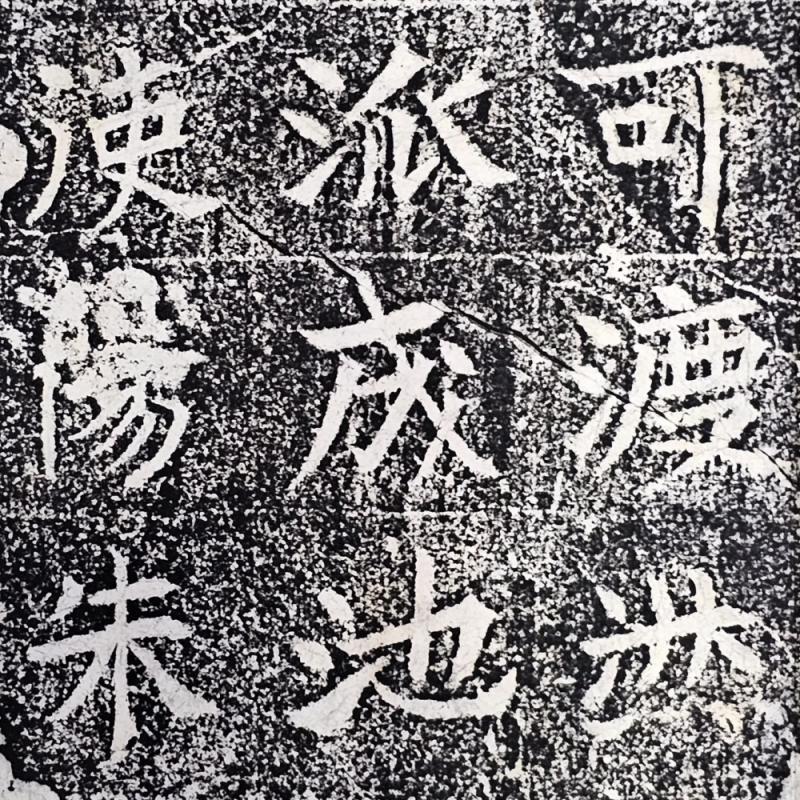 可渡洪
派成池
漢陽朱